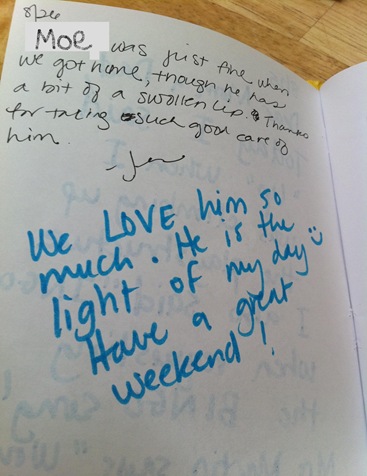 8/26
Moe was just fine when
we got home, though he has
a bit of a swollen lip. Thanks
for taking such good care of
him.
-Jen
We LOVE him so
much. He is the
light of my day
Have a great
weekend!
I
when
the BINGO song